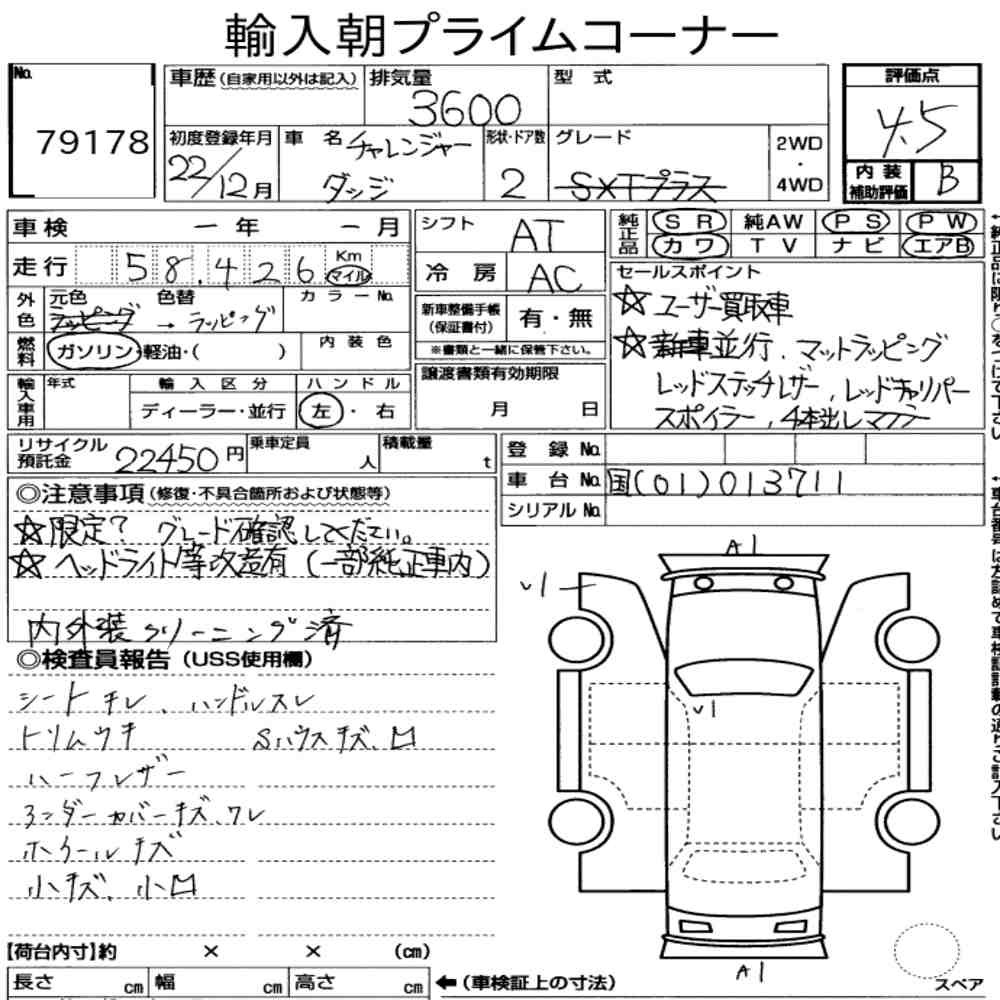 輸入朝プライムコーナー
No.
79178
車歴(自家用以外は記入)
排気量
3600
型 式
評価点
4.5
初度登録年月
22/12月
車 名
チャレンジャー
ダッジ
形状・ドア数
2
グレード
SXTプラス
2WD
・
4WD
内装
補助評価
B
車検 一 年 一 月
シフト
AT
純正品
SR 純AW PS PW
カワ TV ナビ エアB
走行
58,426
Km
マイル
冷房
AC
セールスポイント
☆ユーザー買取車
☆新車並行、マットラッピング
レッドステッチレザー、レッドキャリパー
スポイラー、4本出しマフラー
外色
元色 色替 カラーNo.
ラッピング → ラッピング
新車整備手帳
(保証書付)
有・無
※書類と一緒に保管下さい。
燃料
ガソリン・軽油・( )
内装色
輸入車用
年式
輸入区分
ハンドル
ディーラー・並行
左・右
譲渡書類有効期限
月 日
リサイクル
預託金
22450円
乗車定員
人
積載量
t
登録No.
車台No.
国(01)013711
シリアルNo.
◎注意事項(修復・不具合箇所および状態等)
☆限定? グレード確認してください。
☆ヘッドライト等改造有(一部純正車内)
内外装クリーニング済
◎検査員報告(USS使用欄)
シートキレ、ハンドルスレ
トリムウキ Sハウスキズ、凹
ハーフレザー
アンダーカバーキズ、ワレ
ホイールキズ
小キズ、小凹
A1
V1
V1
A1
スペア
【荷台内寸】約 × × (cm)
長さ cm 幅 cm 高さ cm
←(車検証上の寸法)